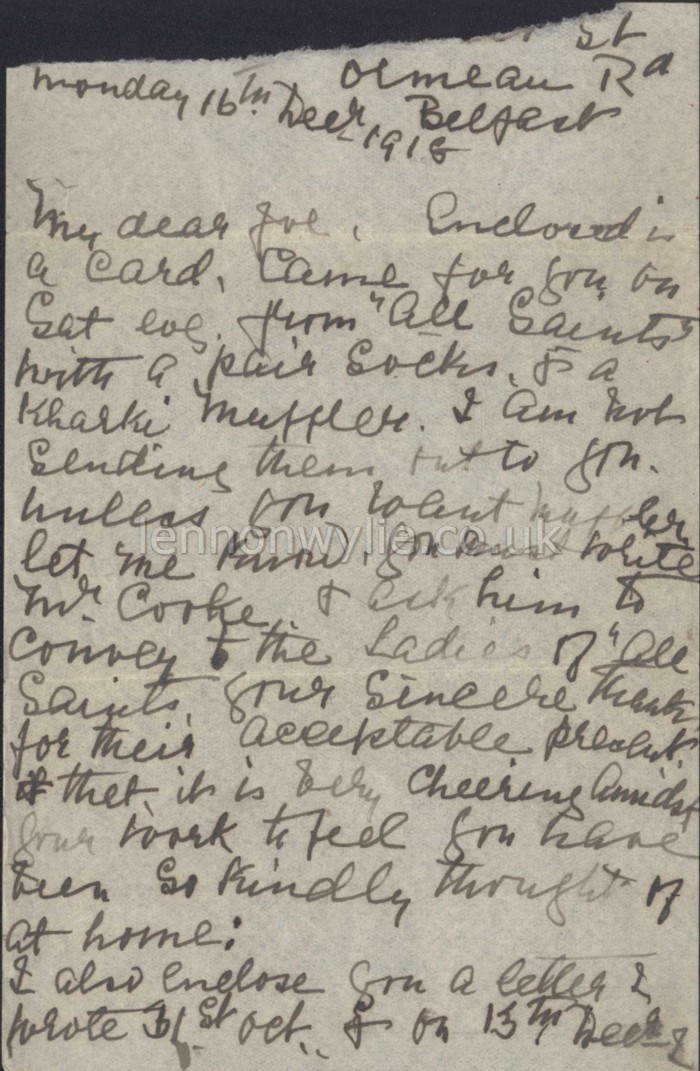 St
Ormeau Rd
Monday 16th Decr Belfast
1918
My dear Joe, Enclosed is
a card, Came for you on
Sat eve. from "All Saints"
with a pair Socks, & a
Kharki Muffler. I am not
Sending them out to you.
unless you want muffler
lennonwylie.co.uk
let me know, you must write
Mr. Cooke, & Ask him to
convey to the Ladies of "All
Saints, your Sincere thanks
for their acceptable present.
& that it is Very Cheering Amidst
your work to feel you have
been So Kindly thought of
at home:
I also enclose you a letter I
wrote 31st Oct., & on 13th Decr I